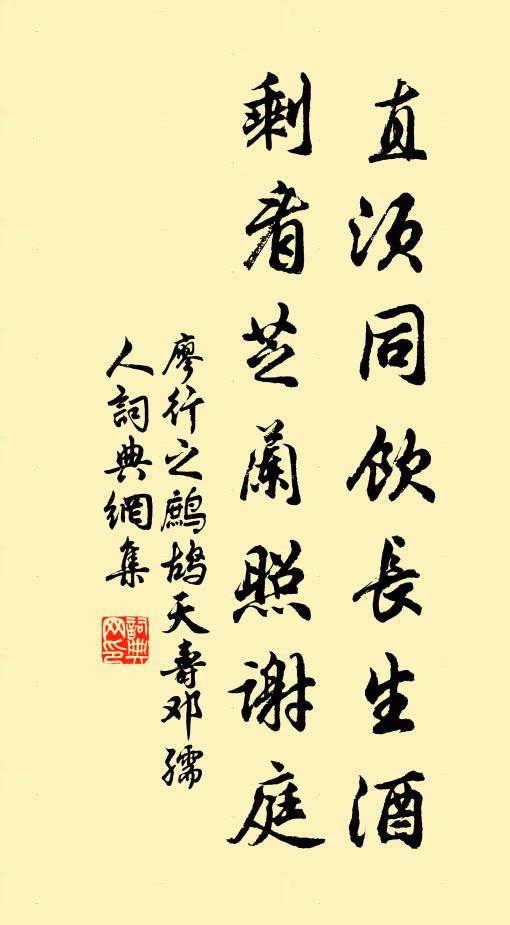 直须同飲長生酒
剩看芝蘭照谢庭
廖行之鷓鸪天壽邓孺
人詞典網集
詞典
网印